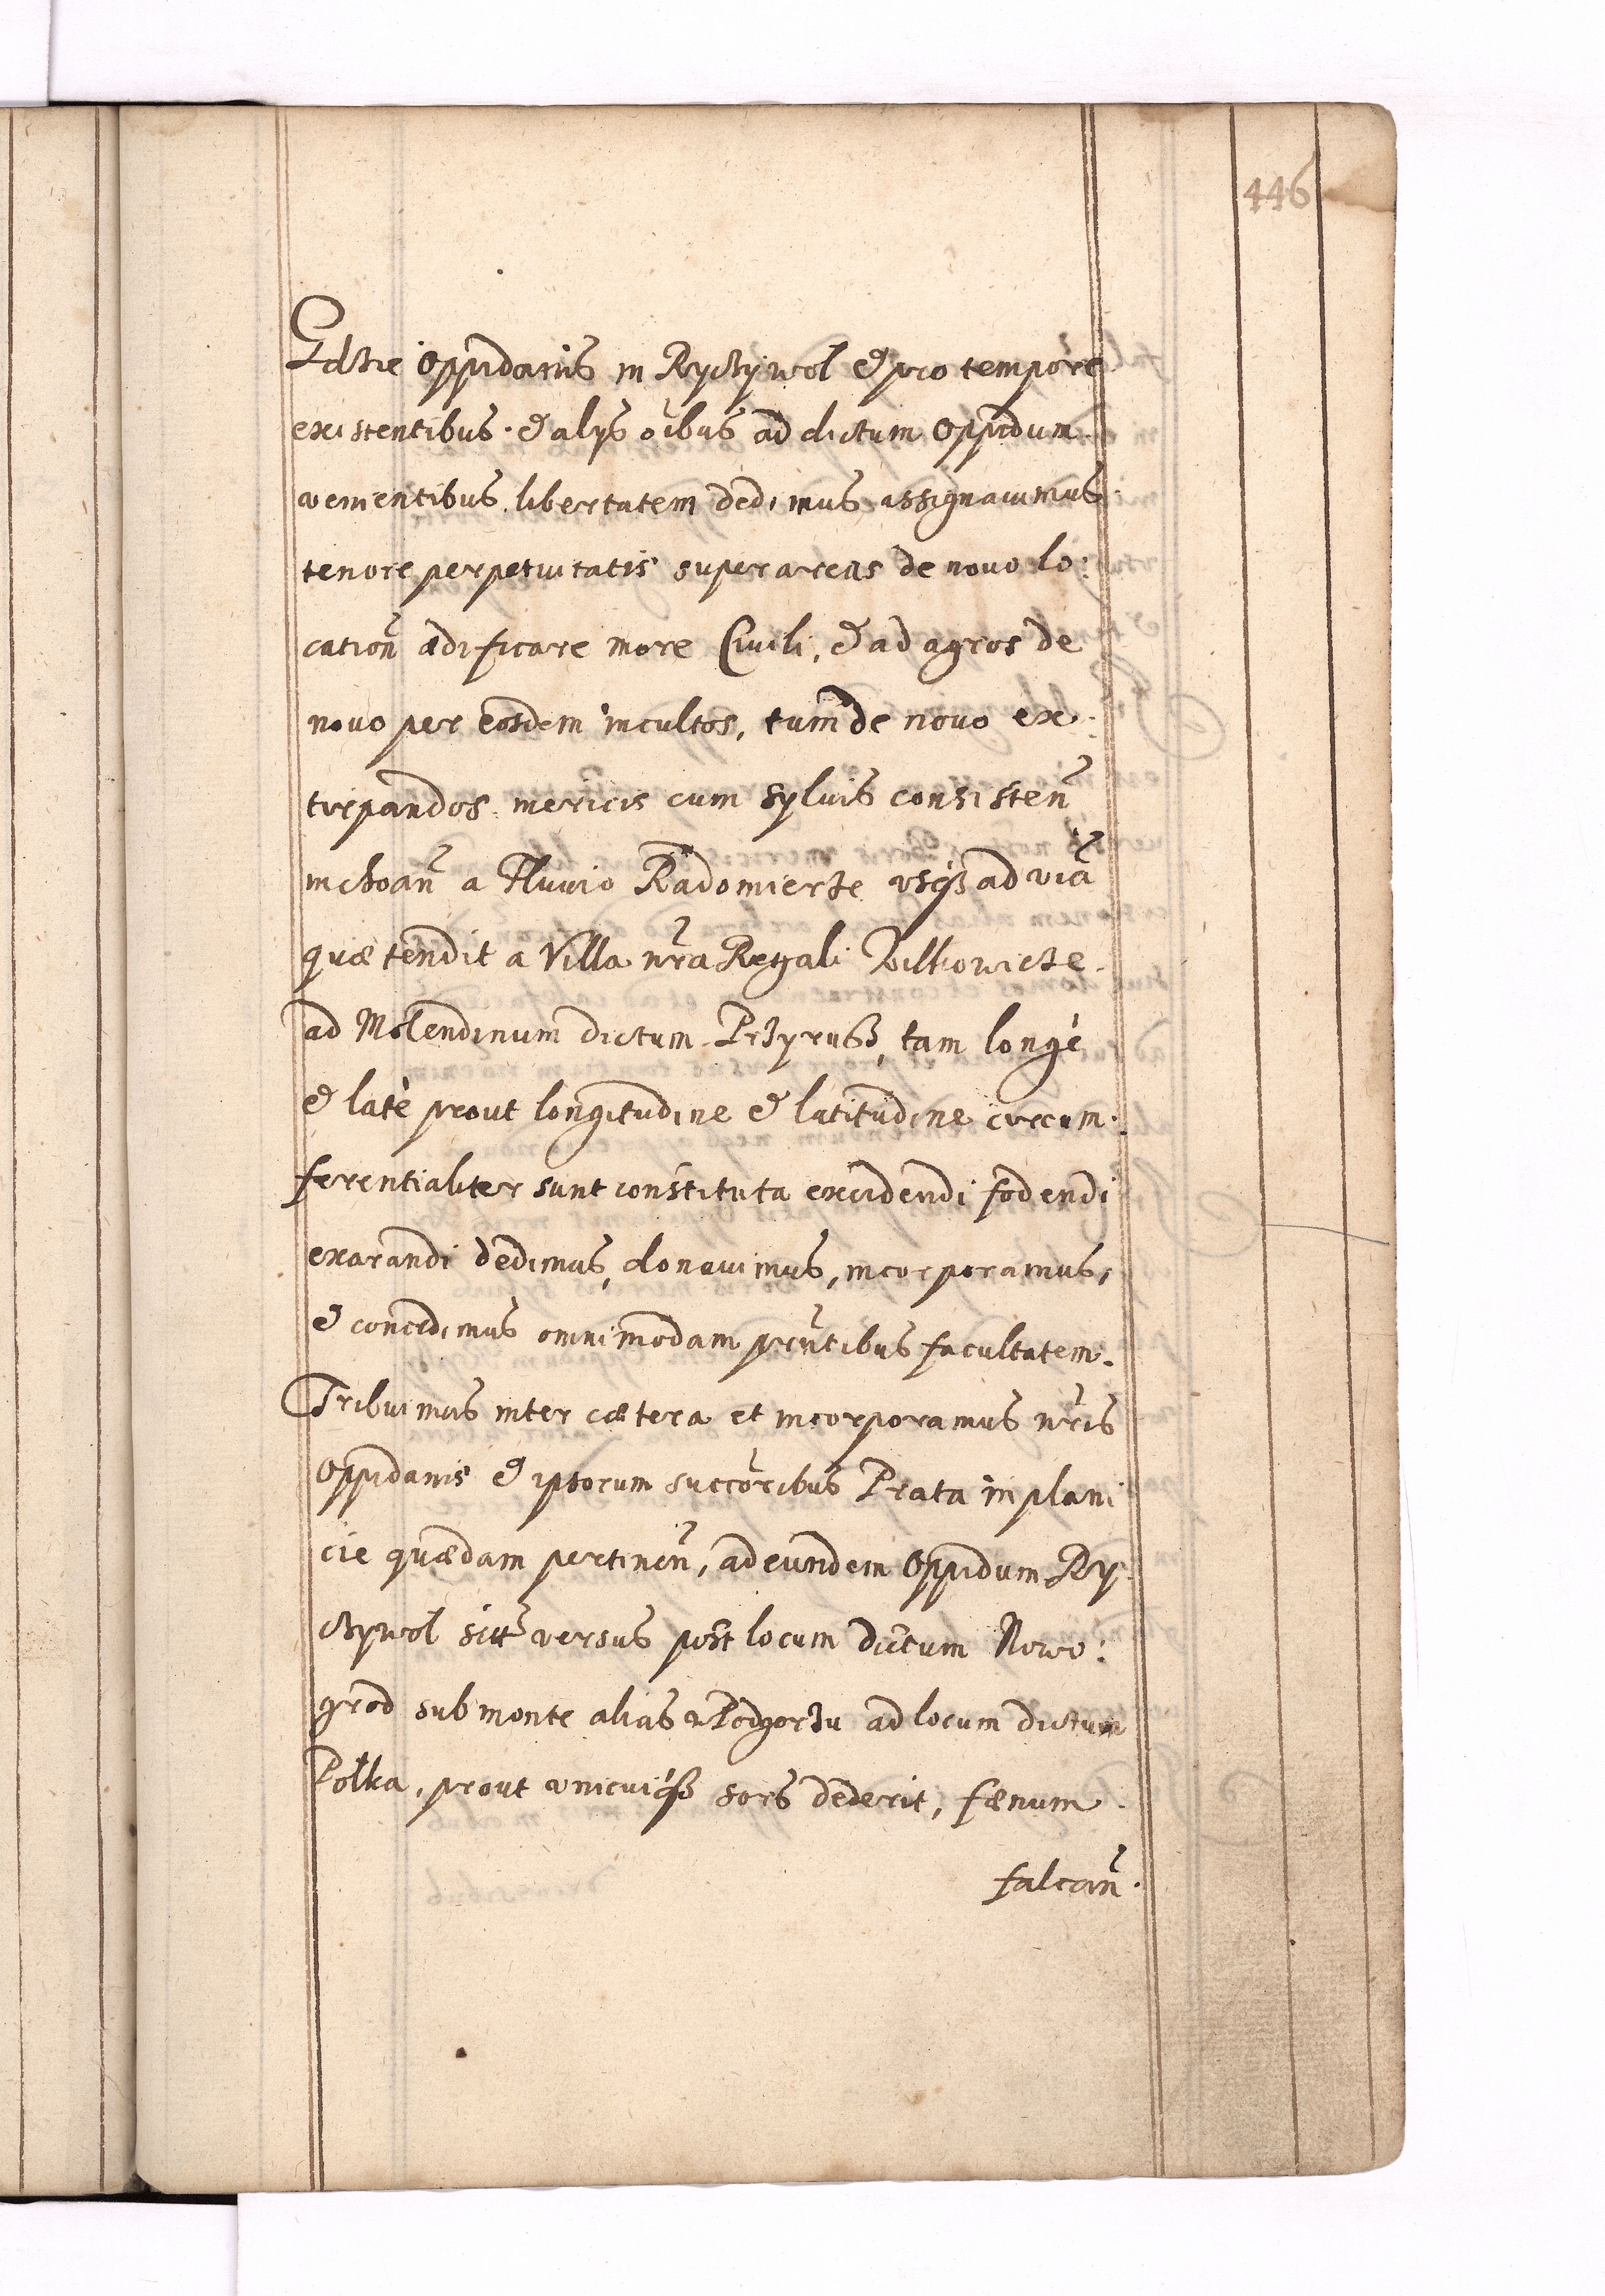 446
Edzie Oppidanis in Ryczywol & pro tempore
existentibus. & alÿs oĩbus ad dictum Oppidum
venientibus libertatem dedimus assignavimus
tenore perpetuitatis super areas de novo lo:
cation̄ ædificare more Civili, & ad agros de
novo per eosdem incultos, tum de novo ex:
tirpandos mericis cum sylvis consisten̄
inchoan̄ a Fluvio Radomierze usq₃ ad viã
quæ tendit a Villa nr̃a Regali Wilkowicze
ad Molendinum dictum Przyrusz, tam longè
& latè prout longitudine & latitudine circum:
ferentialiter sunt constituta excidendi fodendi
exarandi dedimus, donavimus, incorporamus,
& concedimus omnimodam pñtibus facultatem.
Tribuimus inter cætera et incorporamus nr̃is
Oppidanis & ipsorum succõribus Prata in plani
cie quædam pertinen̄, ad eundem Oppidum Ry
czywol versus post locum dictum Nowo:
grod sub monte alias w Podgorzu ad locum dictum
Polka, prout unicuiq₃ sors dederit, fænum
falcan̄.